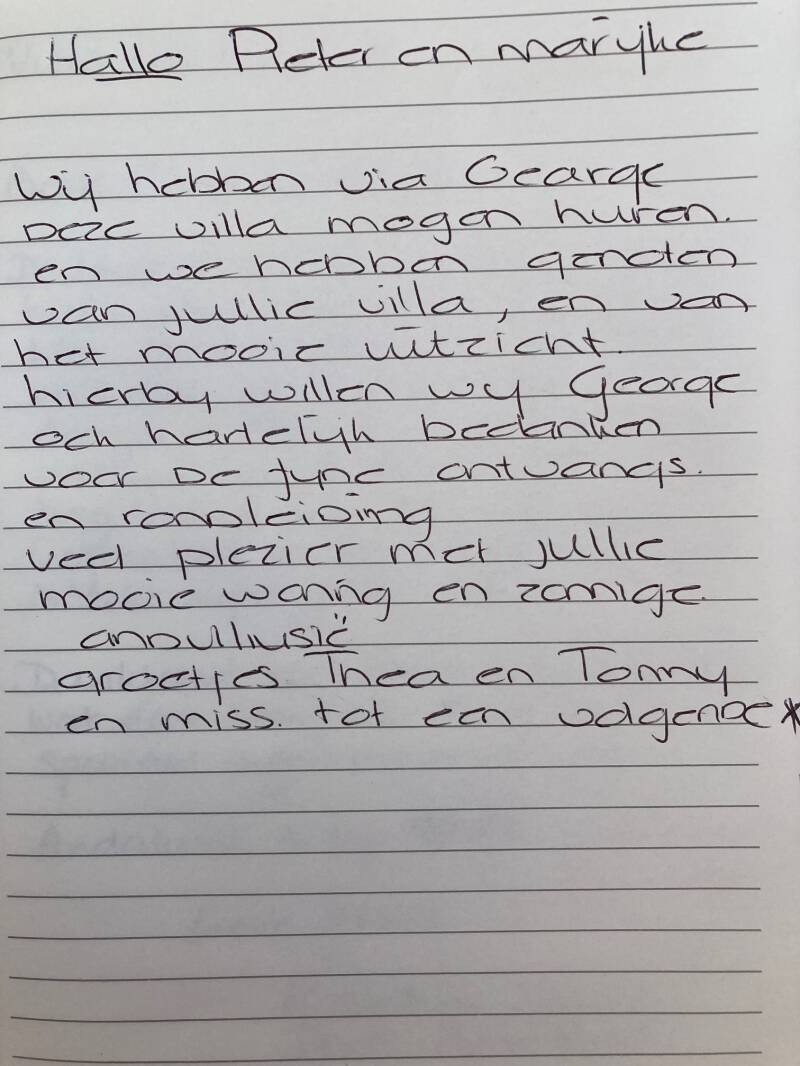 Hallo Pieter en marijke
Wij hebben via George
Deze villa mogen huren.
en we hebben genoten
van jullie villa, en van
het mooie uitzicht.
hierby willen wy George
och hartelijk bedanken
voor De fyne ontvangs.
en ronDleiDing
veel plezier met jullie
mooie woning en zonnige
anDulliusië
groetjes Thea en Tonny
en miss. tot een volgenDe *